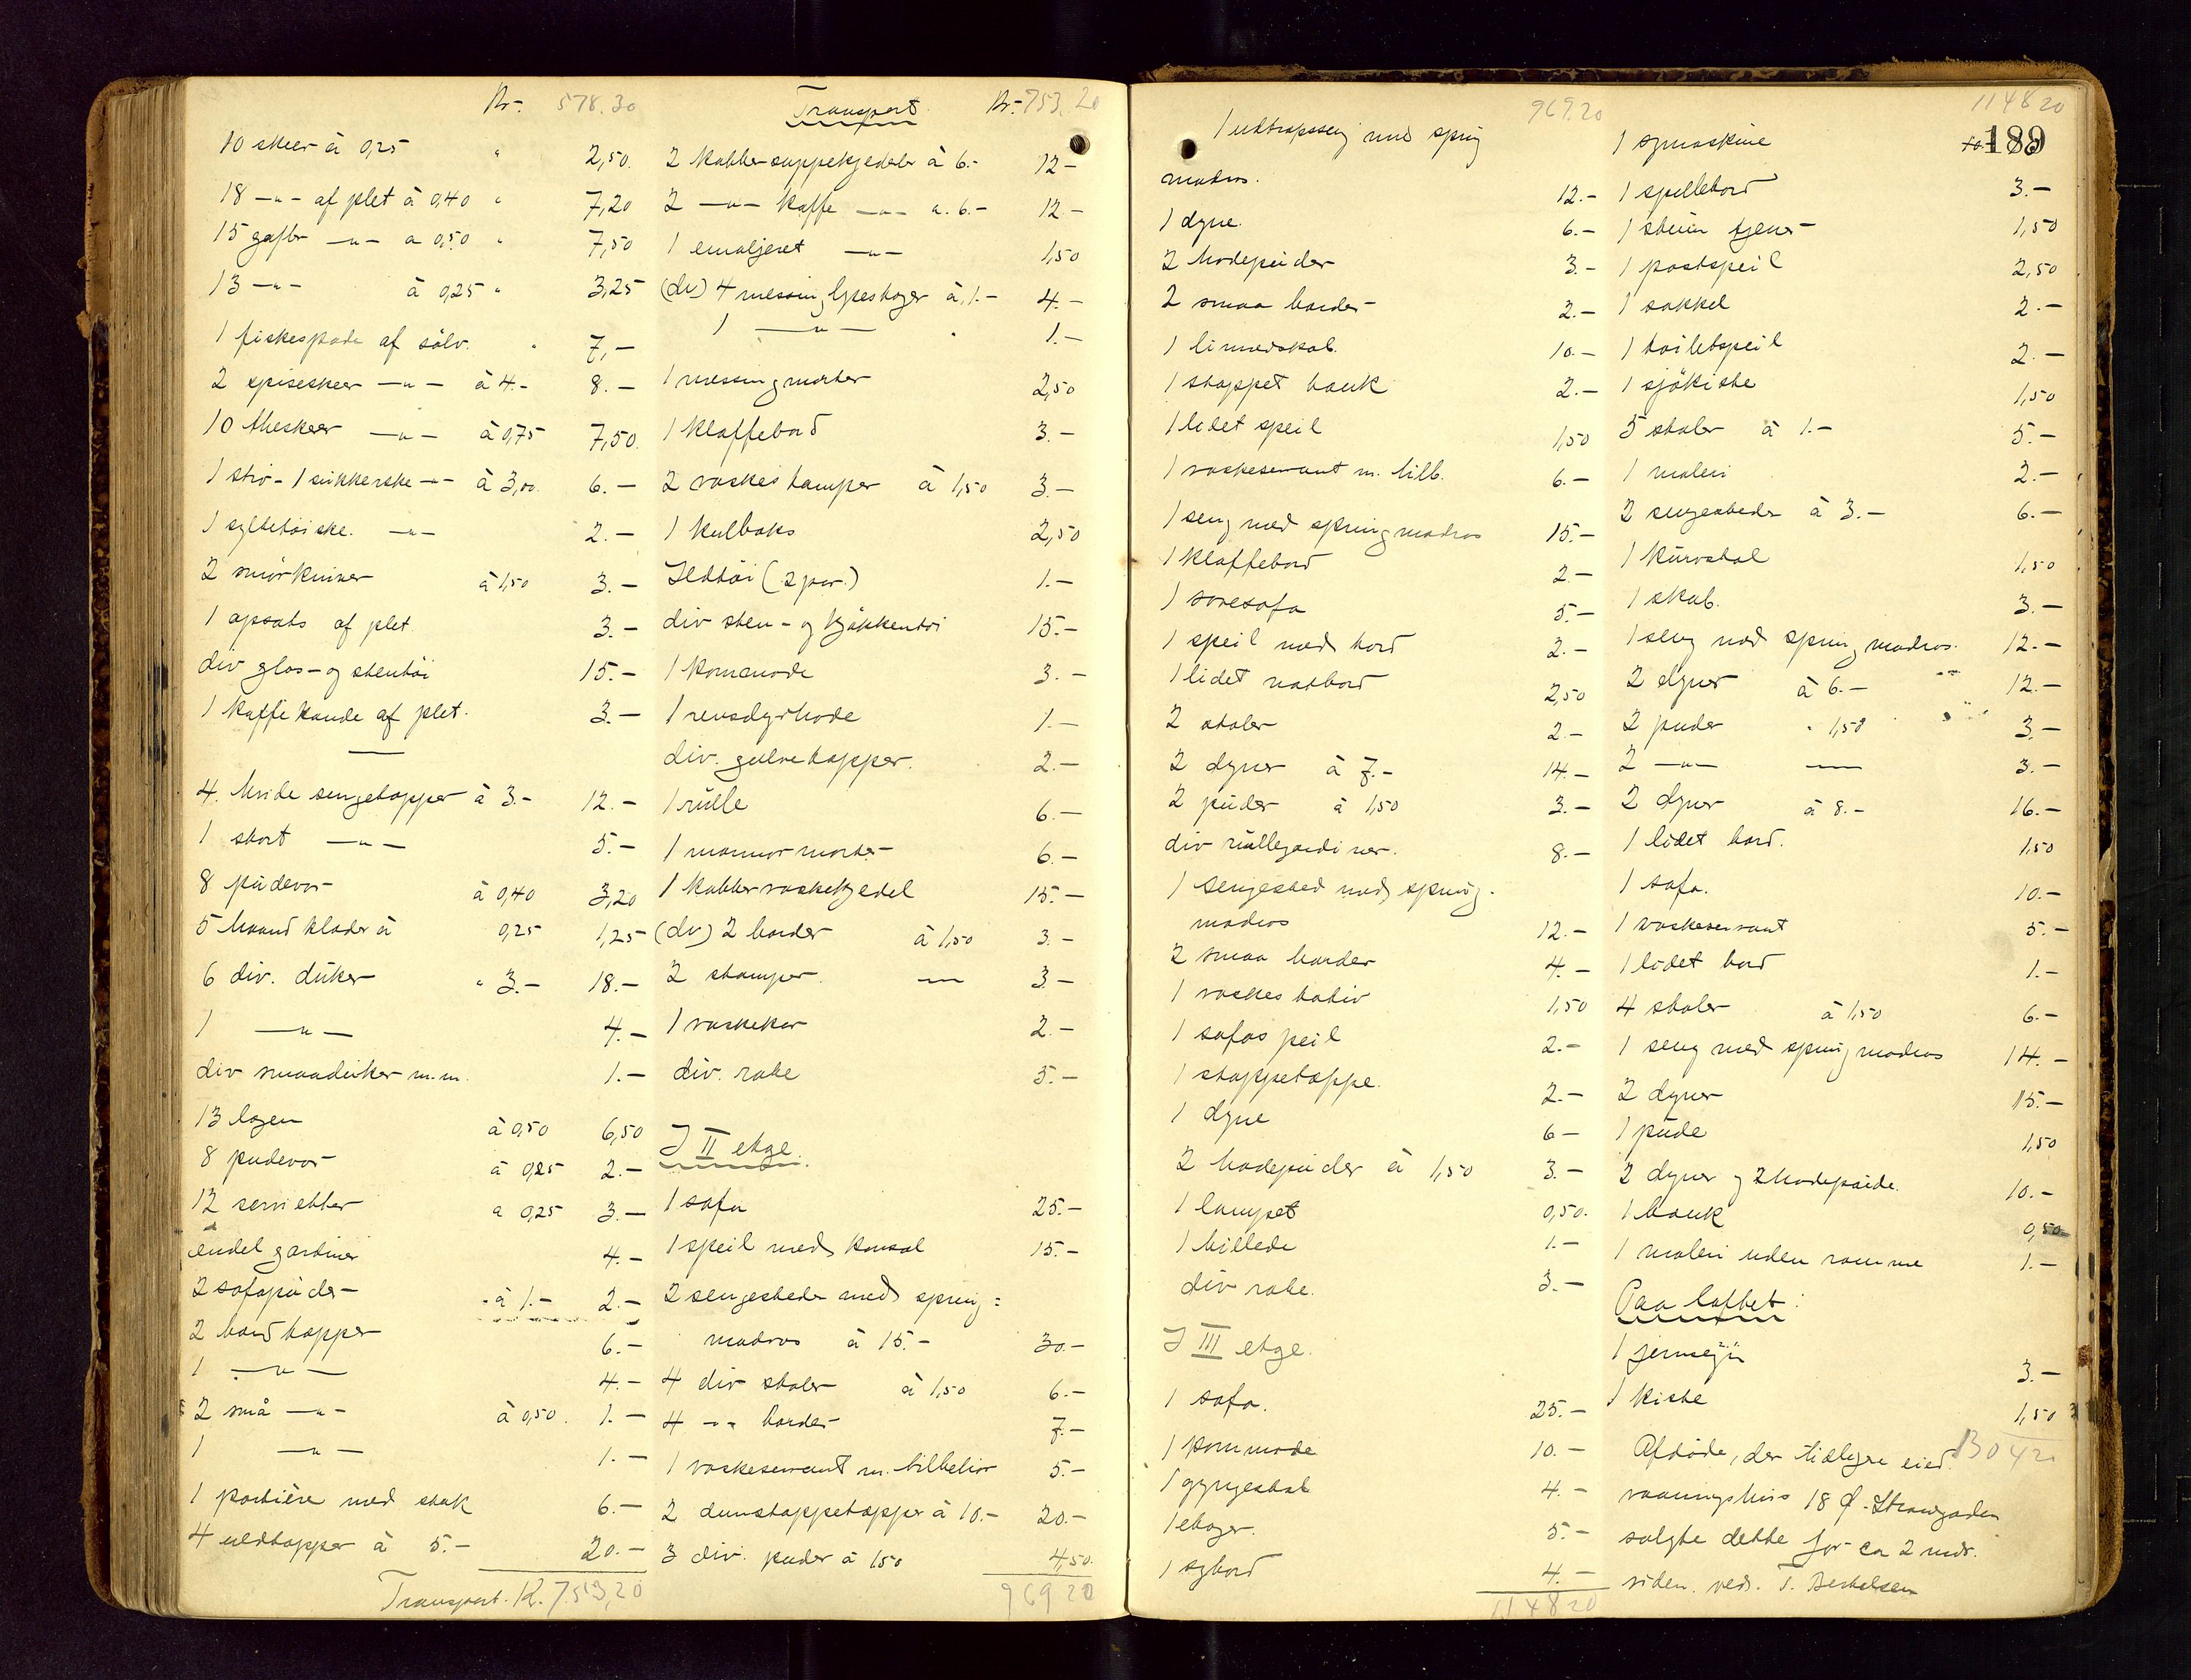 Kr. 578.30
10 skeer à 0,25 " 2,50.
18 -"- af plet à 0,40 " 7,20
15 gafler -"- a 0,50 " 7,50
13 -"- à 0,25 " 3,25
1 fiskespade af sölv. " 7,-
2 spiseskeer -"- à 4.- 8.-
10 theskeer -"- à 0,75 7,50.
1 strö- 1 sukkerske -"- à 3,00. 6.-
1 syltetöiske. -"- 2.-
2 smörkniver à 1,50 3.-
1 opsats af plet. 3.-
div glas- og stentöi 15.-
1 kaffekande af plet. 3.-
4. hvide sengetæpper à 3.- 12.-
1 stort -"- 5.-
8 pudevar à 0,40 3,20
5 haandklæder à 0,25 1,25
6 div. duker " 3.- 18.-
1 -"- 4.-
div smaaduker m.m. 1.-
13 lagen à 0,50 6,50
8 pudevar à 0,25 2.-
12 servietter a 0,25 3.-
endel gardiner 4.-
2 sofapuder à 1.- 2.-
2 bordtæpper 6.-
1 -"- 4.-
2 små -"- à 0,50. 1.-
1 -"- 1.-
1 portière med stak 6.-
4 uldtæpper à 5.- 20.-
Transport. K. 753,20
Transport Kr. 753.20
2 kobbersuppekjedeler à 6.- 12.-
2 -"- kaffe -"- a. 6.- 12.-
1 emaljeret -"- 1,50
(du) 4 messinglysestager à 1.- 4.-
1 -"- " 1.-
1 messingmorter 2,50
1 klaffebord 3.-
2 vaskestamper à 1,50 3.-
1 kulboks 2,50
Ildtöi (2 par.) 1.-
div sten- og kjökkentöi 15.-
1 kommode 3.-
1 rensdyrhode 1.-
div. gulvetæpper. 2.-
1 rulle 6.-
1 marmormorter 6.-
1 kobbervaskekjedel 15.-
(du) 2 border à 1,50 3.-
2 stamper. -"- 3.-
1 vaskekar 2.-
div. rake 5.-
I II etage.
1 sofa 25.-
1 speil med konsol 15.-
2 sengesteder med spring=
madras à 15.- 30.-
4 div stoler à 1,50 6.-
4 -"- border 7.-
1 vaskeservant m. tilbehör 5.-
2 dunstoppetæpper à 10.- 20.-
3 div. puder à 150 4,50.
969 20
969.20
1 udtræksseng med spring
madras. 12.-
1 dyne. 6.-
2 hodepuder 3.-
2 smaa border 2.-
1 linnedskab. 10.-
1 stoppet bænk 2.-
1 lidet speil 1,50
1 vaskeservant m. tilb. 6.-
1 seng med springmadras 15.-
1 klaffebord 2.-
1 sovesofa 5.-
1 speil med bord 2.-
1 lidet natbord 2,50
2 stoler 2.-
2 dyner à 7.- 14.-
2 puder à 1,50 3.-
div rullegardiner. 8.-
1 sengested med spring-
madras 12.-
2 smaa border 4.-
1 vaskestativ 1,50
1 sofaspeil 2.-
1 stoppetæppe. 2.-
1 dyne 6-
2 hodepuder à 1,50 3.-
1 lampet 0,50.
1 billede 1.-
div rake. 3.-
I III etage.
1 sofa. 25.-
1 kommode 10.-
1 gyngestol 4.-
1 etager. 5.-
1 sybord 4.-
1148 20
1148 20
189
1 symaskine 10.-
1 spillebord 3.-
1 stum tjener 1,50
1 postspeil 2,50
1 sokkel 2.-
1 toiletspeil 2.-
1 sjökiste 1,50
5 stoler à 1.- 5.-
1 maleri 2.-
2 sengesteder à 3.- 6.-
1 kurvstol 1,50
1 skab. 3.-
1 seng med springmadras. 12.-
2 dyner à 6.- 12.-
2 puder " 1,50 3.-
2 -"- -"- 3.-
2 dyner à 8.- 16.-
1 lidet bord. 1,50
1 sofa. 10.-
1 vaskeservant 5.-
1 lidet bord 1.-
4 stoler à 1,50 6.-
1 seng med springmadras 14.-
2 dyner 15.-
1 pude 1,50
2 dyner og 2 hodepuide. 10.-
1 bænk 0,50
1 maleri uden ramme 1.-
Paa loftet:
3.-
1 kiste 1,50
1304 20
Afdöde, der tidligere eied.
vaaningshus 18 Ø. Strandgaden
solgte dette for ca 2 mdr.
siden. ved. T. Bertelsen